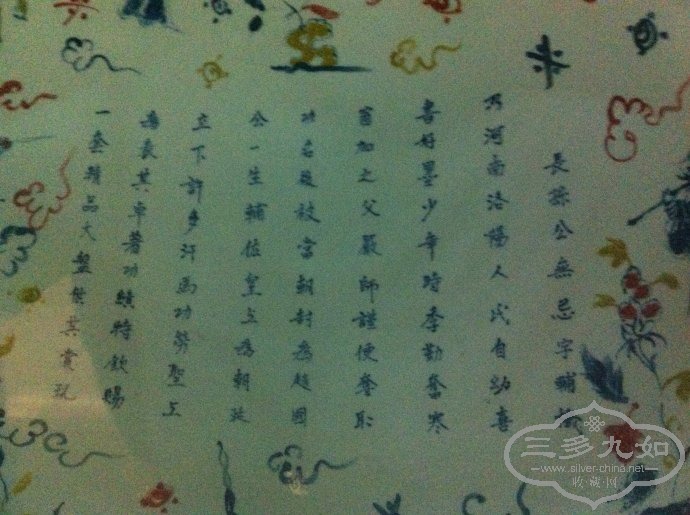 長孫公無忌字輔機
乃河南洛陽人氏自幼喜
書好墨少年時季勤奮寒
窗加之父嚴師謹便奪取
功名及被當朝封為趙國
公一生輔位皇上為朝廷
立下許多汗馬功勞聖上
為表其卓著功績特欽賜
一套精品大盤供其賞玩
三多九如
www.silver-china.net
收藏网